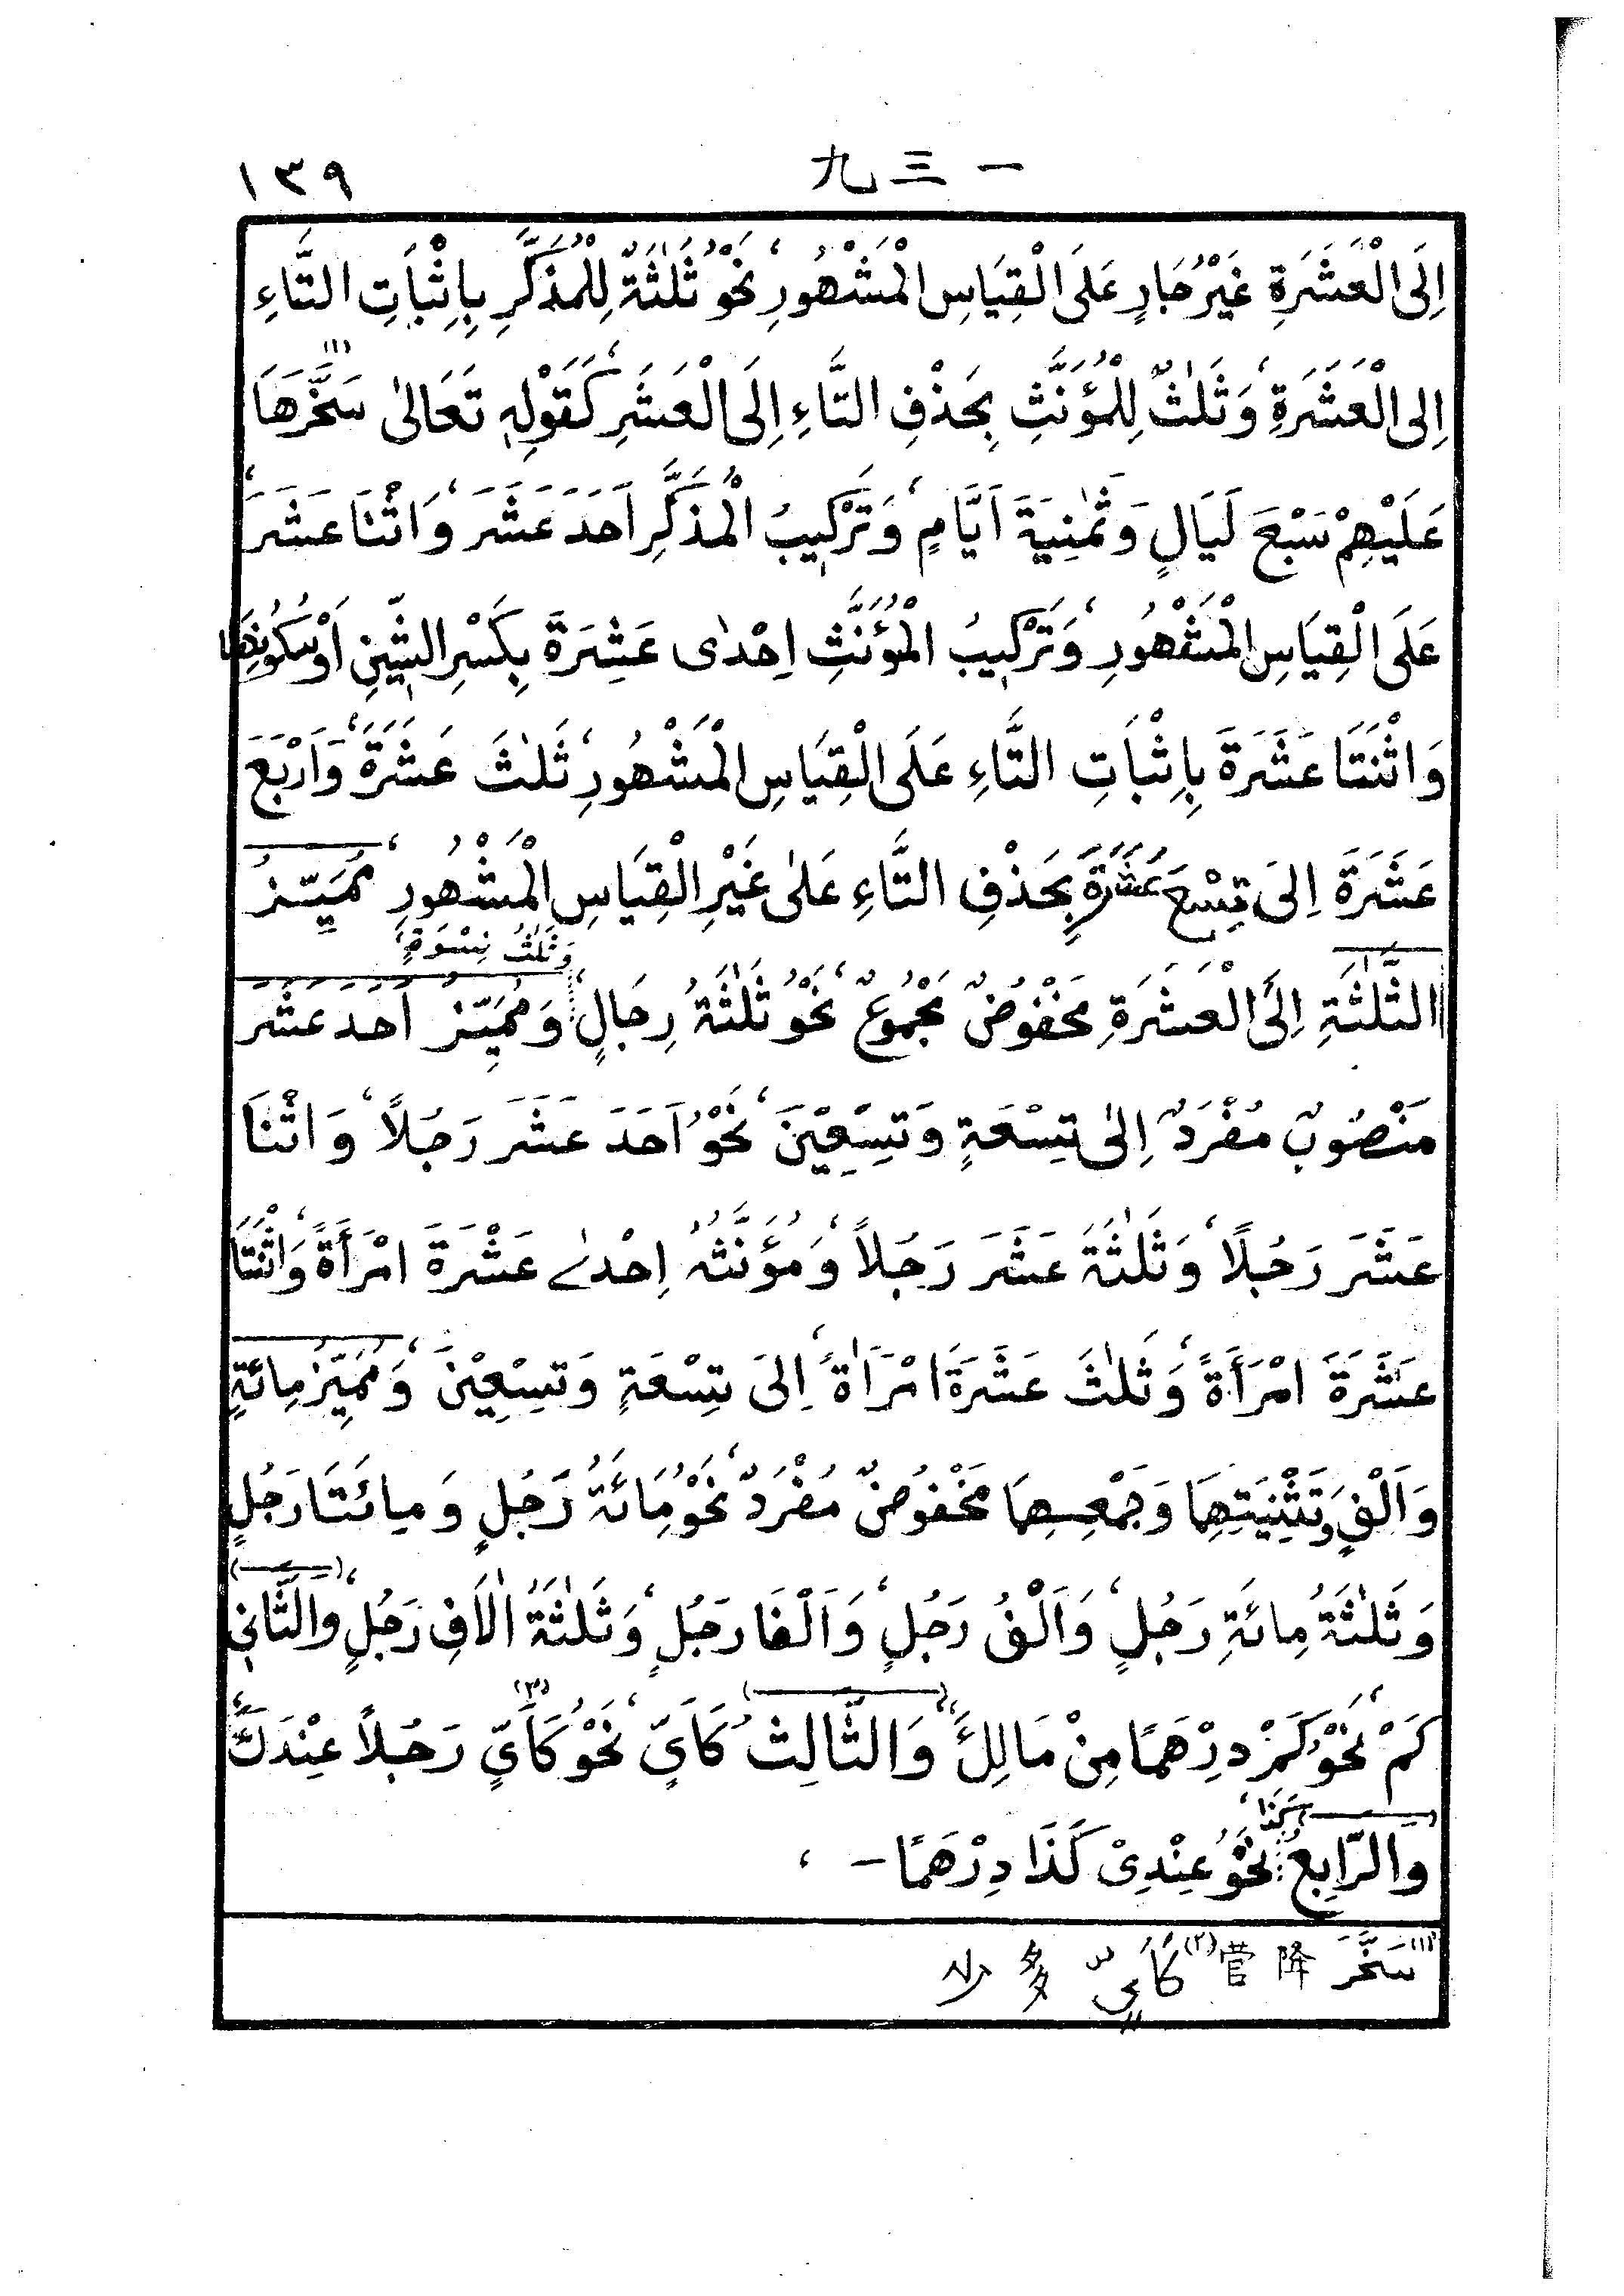 ١٣٩ 九三一
اِلَى الْعَشَرَةِ غَيْرُ جَارٍ عَلَى الْقِيَاسِ الْمَشْهُورِ، نَحْوُ ثَلٰثَةٌ لِلْمُذَكَّرِ بِاِثْبَاتِ التَّاءِ
اِلى الْعَشَرَةِ، وَثَلٰثٌ لِلْمُؤَنَّثِ بِحَذْفِ التَّاءِ اِلَى الْعَشَرِ، كَقَوْلِهٖ تَعَالىٰ سَخَّرَهَا (١)
عَلَيْهِمْ سَبْعَ لَيَالٍ وَثَمٰنِيَةَ اَيَّامٍ، وَتَرْكِيبُ الْمُذَكَّرِ اَحَدَ عَشَرَ، وَاثْنَا عَشَرَ،
عَلَى الْقِيَاسِ الْمَشْهُورِ، وَتَرْكِيبُ الْمُؤَنَّثِ اِحْدٰى عَشِرَةَ بِكَسْرِ الشِّيْنِ اَوْسُكُونِهَا
وَاثْنَتَا عَشَرَةَ بِاِثْبَاتِ التَّاءِ عَلَى الْقِيَاسِ الْمَشْهُورِ، ثَلٰثَ عَشَرَةَ، وَاَرْبَعَ
عَشَرَةَ اِلىَ تِسْعَ عَشَرَةَ بِحَذْفِ التَّاءِ عَلىٰ غَيْرِ الْقِيَاسِ الْمَشْهُورِ، مُمَيِّـزُ
الثَّلٰثَةِ اِلَى الْعَشَرَةِ مَخْفُوضٌ مَجْمُوعٌ، نَحْوُ ثَلٰثَةُ رِجَالٍ، وَثَلٰثُ نِسْوَةٍ، وَمُمَيِّـزُ اَحَدَ عَشَرَ
مَنْصُوبٌ مُفْرَدٌ اِلىٰ تِسْعَةٍ وَتِسْعِيْنَ، نَحْوُ اَحَدَ عَشَرَ رَجُلاً، وَاثْنَا
عَشَرَ رَجُلًا، وَثَلٰثَةَ عَشَرَ رَجُلاً، وَمُؤَنَّثُهُ اِحْدٰے عَشْرَةَ امْرَأَةً، وَاثْنَتَا
عَشَرَةَ امْرَأَةً، وَثَلٰثَ عَشَرَةَ امْرَاَةً، اِلىَ تِسْعَةٍ وَتِسْعِيْنَ، وَمُمَيِّزُ مِائَةٍ
وَاَلْفٍ وَتَثْنِيَتِهِمَا وَجَمْعِـهِمَا مَخْفُوضٌ مُفْرَدٌ، نَحْوُ مِائَةُ رَجُلٍ وَمِائَتَا رَجُلٍ
وَثَلٰثَةُ مِائَةِ رَجُلٍ، وَاَلْفُ رَجُلٍ، وَاَلْفَا رَجُلٍ، وَثَلٰثَةُ اٰلَافِ رَجُلٍ، (وَالثَّانِي)
كَمْ، نَحْوُ كَمْ دِرْهَمًا مِنْ مَالِكَ، (وَالثَّالِثُ) كَاَيٍّ، نَحْوُ كَاَيٍّ (٢) رَجُلاً عِنْدَكَ،
(وَالرَّابِعُ) كَذَا، نَحْوُ عِنْدِىْ كَذَا دِرْهَمًا – ،
(١) سَخَّرَ 降 管 (٢) كَاَيٍّ 多 少